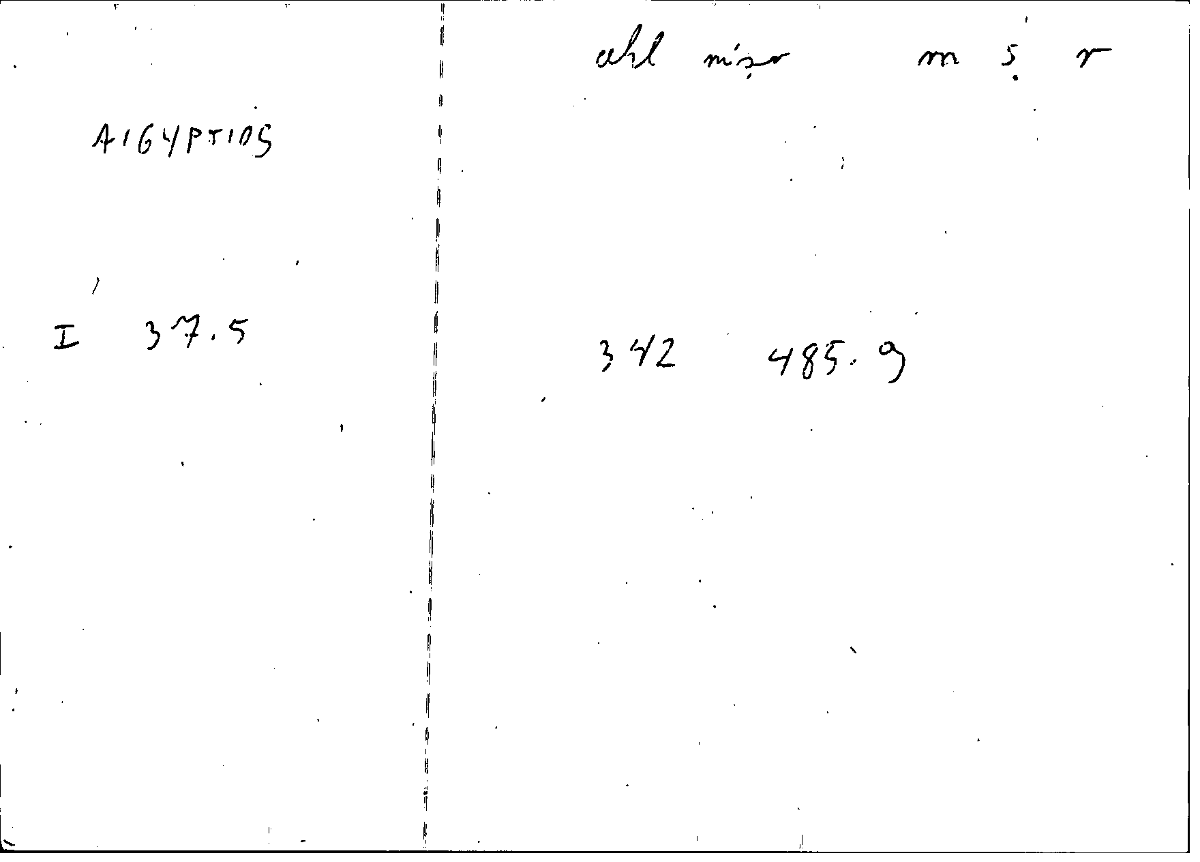 ahl miṣr m ṣ r
AIGYPTIOS
I 37.5
342 485.9